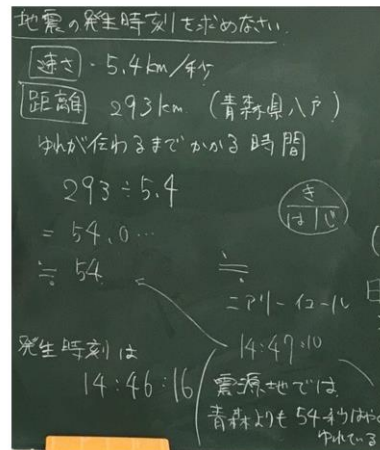 地震の発生時刻を求めなさい.
速さ・5.4km/秒
距離 293km (青森県八戸)
ゆれが伝わるまでかかる時間
293÷5.4
= 54.0…
≒ 54
き
は|じ
≒
ニアリーイコール
14:47:10
発生時刻は
14:46:16
震源地では
青森よりも54秒はや
ゆれている